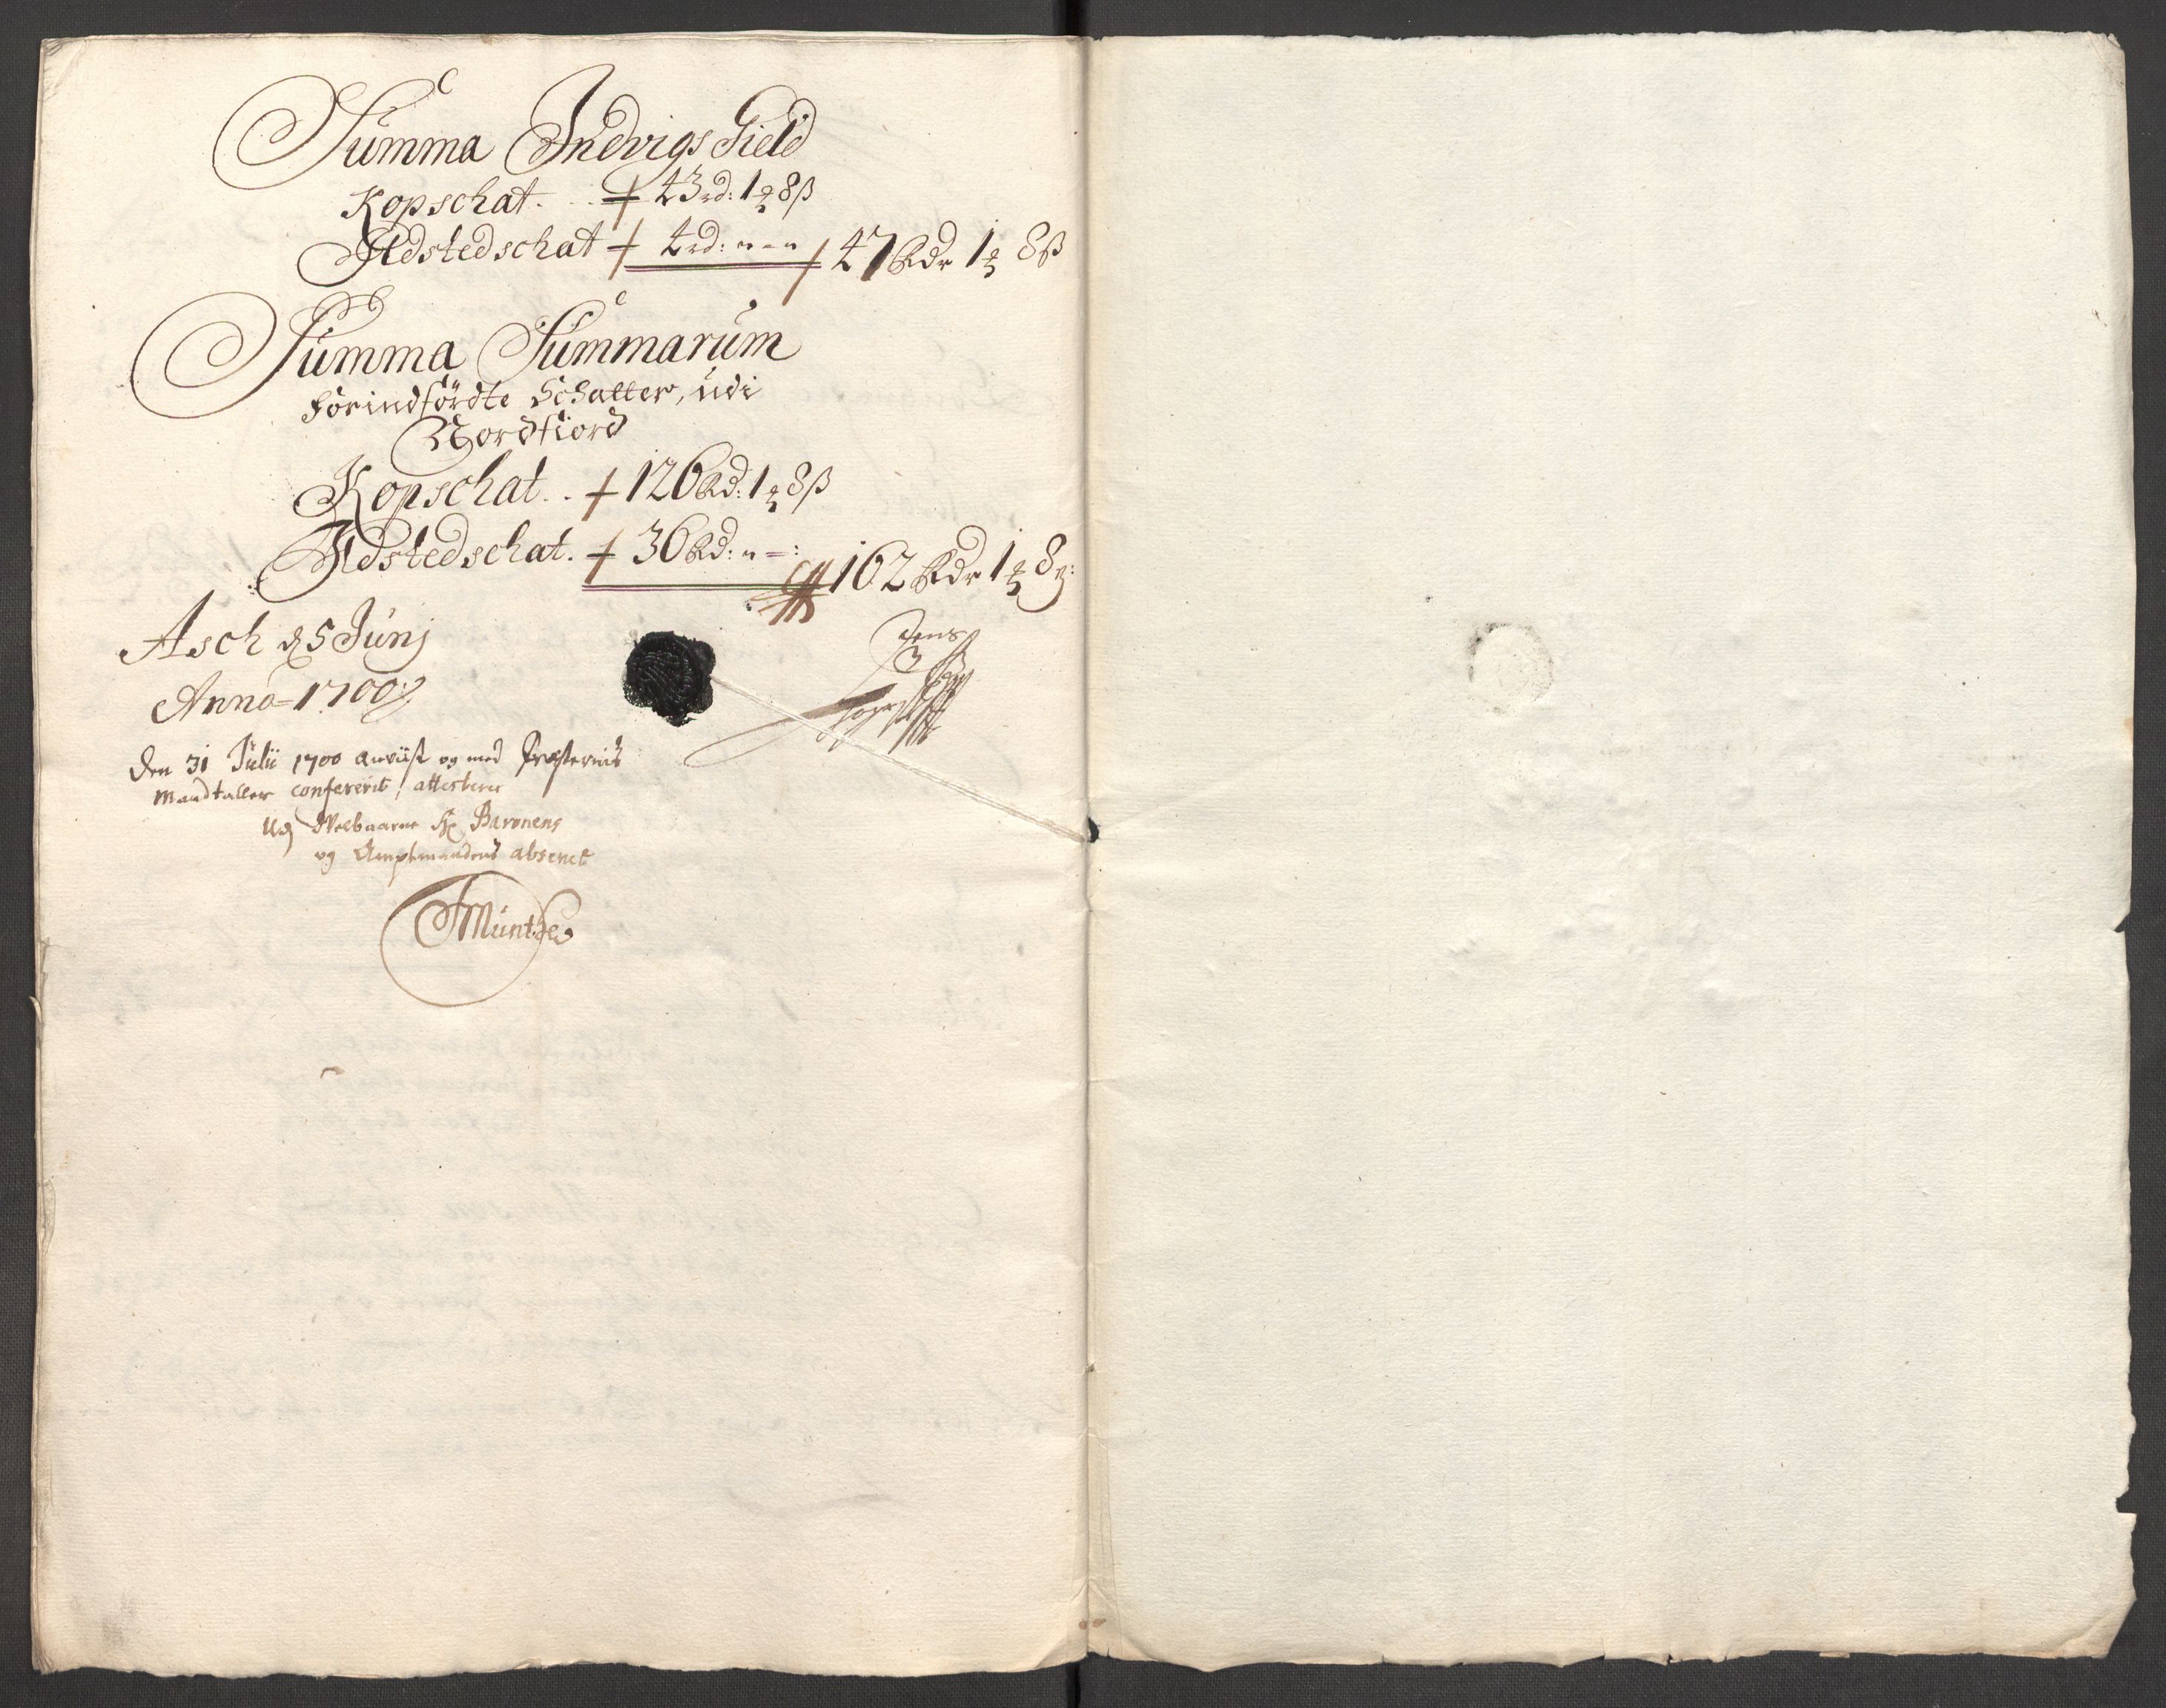 Summa Indvigs Gield
Kopschat. . . 43 rd: 1 ⁊ 8 ß
Ildstedschat 4 rd: " - " 47 Rdr 1 ⁊ 8 ß
Summa Summarum
forindfördte Schatter, udi
Nordfiord
Kopschat. . 126 Rd: 1 ⁊ 8 ß
Ildstedschat. 36 Rd: " - : 162 Rdr 1 ⁊ 8 ß:
Asch d 5 Junj
Anno = 1700
Jens
Den 31 Julii 1700 anviist og med Præsternis
Mandtaller confererit, attesterer
Udj Welbaarne Hr Baronens
og Amptmandens absence
Münthe